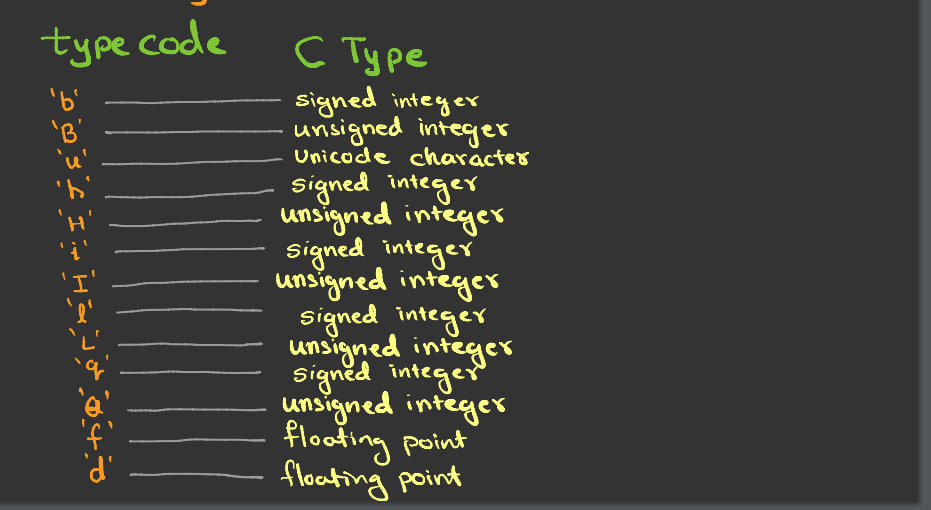 type code C Type
'b' signed integer
'B' unsigned integer
'u' Unicode character
'h' signed integer
'H' unsigned integer
'i' signed integer
'I' unsigned integer
'l' signed integer
'L' unsigned integer
'q' signed integer
'Q' unsigned integer
'f' floating point
'd' floating point